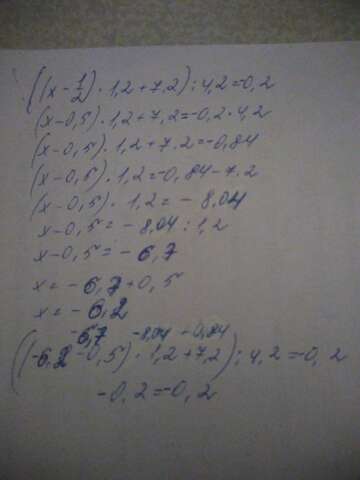 ((x - 1/2) · 1,2 + 7,2) : 4,2 = -0,2
(x - 0,5) · 1,2 + 7,2 = -0,2 · 4,2
(x - 0,5) · 1,2 + 7,2 = -0,84
(x - 0,5) · 1,2 = -0,84 - 7,2
(x - 0,5) · 1,2 = - 8,04
x - 0,5 = - 8,04 : 1,2
x - 0,5 = - 6,7
x = - 6,7 + 0,5
x = - 6,2
-6,7 -8,04 + 0,84
((-6,2 - 0,5) · 1,2 + 7,2) : 4,2 = -0,2
-0,2 = -0,2